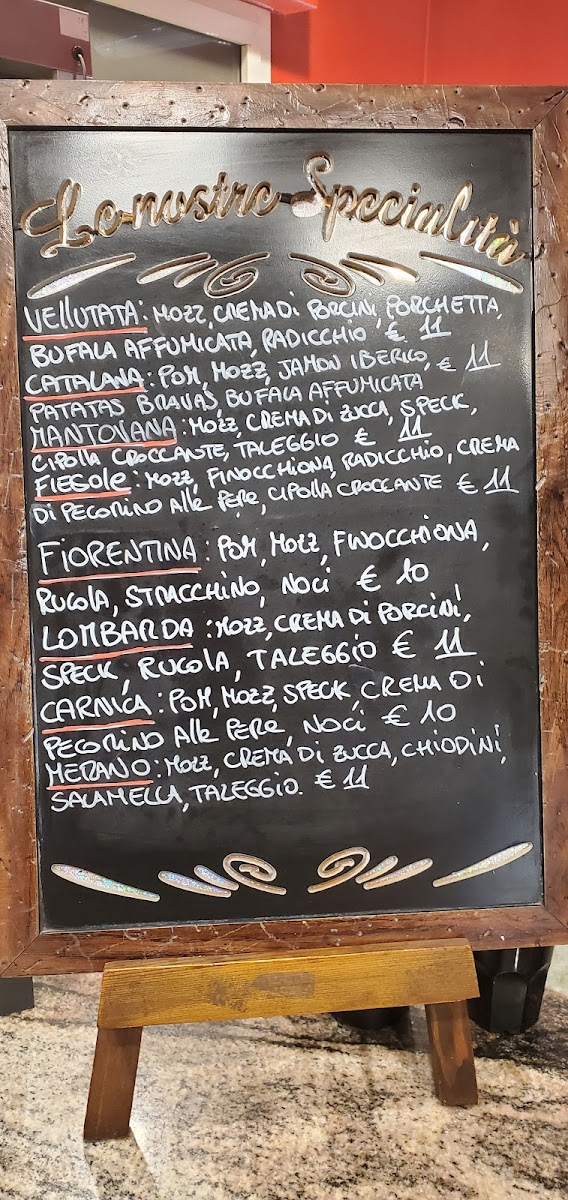 Le nostre Specialità
VELLUTATA: MOZZ, CREMA DI PORCINI, PORCHETTA,
BUFALA AFFUMICATA, RADICCHIO € 11
CATALANA: POM, MOZZ, JAMON IBERICO, € 11
PATATAS BRAVAS, BUFALA AFFUMICATA
MANTOVANA: MOZZ, CREMA DI ZUCCA, SPECK,
CIPOLLA CROCCANTE, TALEGGIO € 11
FIESOLE: MOZZ, FINOCCHIONA, RADICCHIO, CREMA
DI PECORINO ALLE PERE, CIPOLLA CROCCANTE € 11
FIORENTINA: POM, MOZZ, FINOCCHIONA,
RUCOLA, STRACCHINO, NOCI € 10
LOMBARDA: MOZZ, CREMA DI PORCINI,
SPECK, RUCOLA, TALEGGIO € 11
CARNICA: POM, MOZZ, SPECK, CREMA DI
PECORINO ALLE PERE, NOCI € 10
MERANO: MOZZ, CREMA DI ZUCCA, CHIODINI,
SALAMELLA, TALEGGIO. € 11